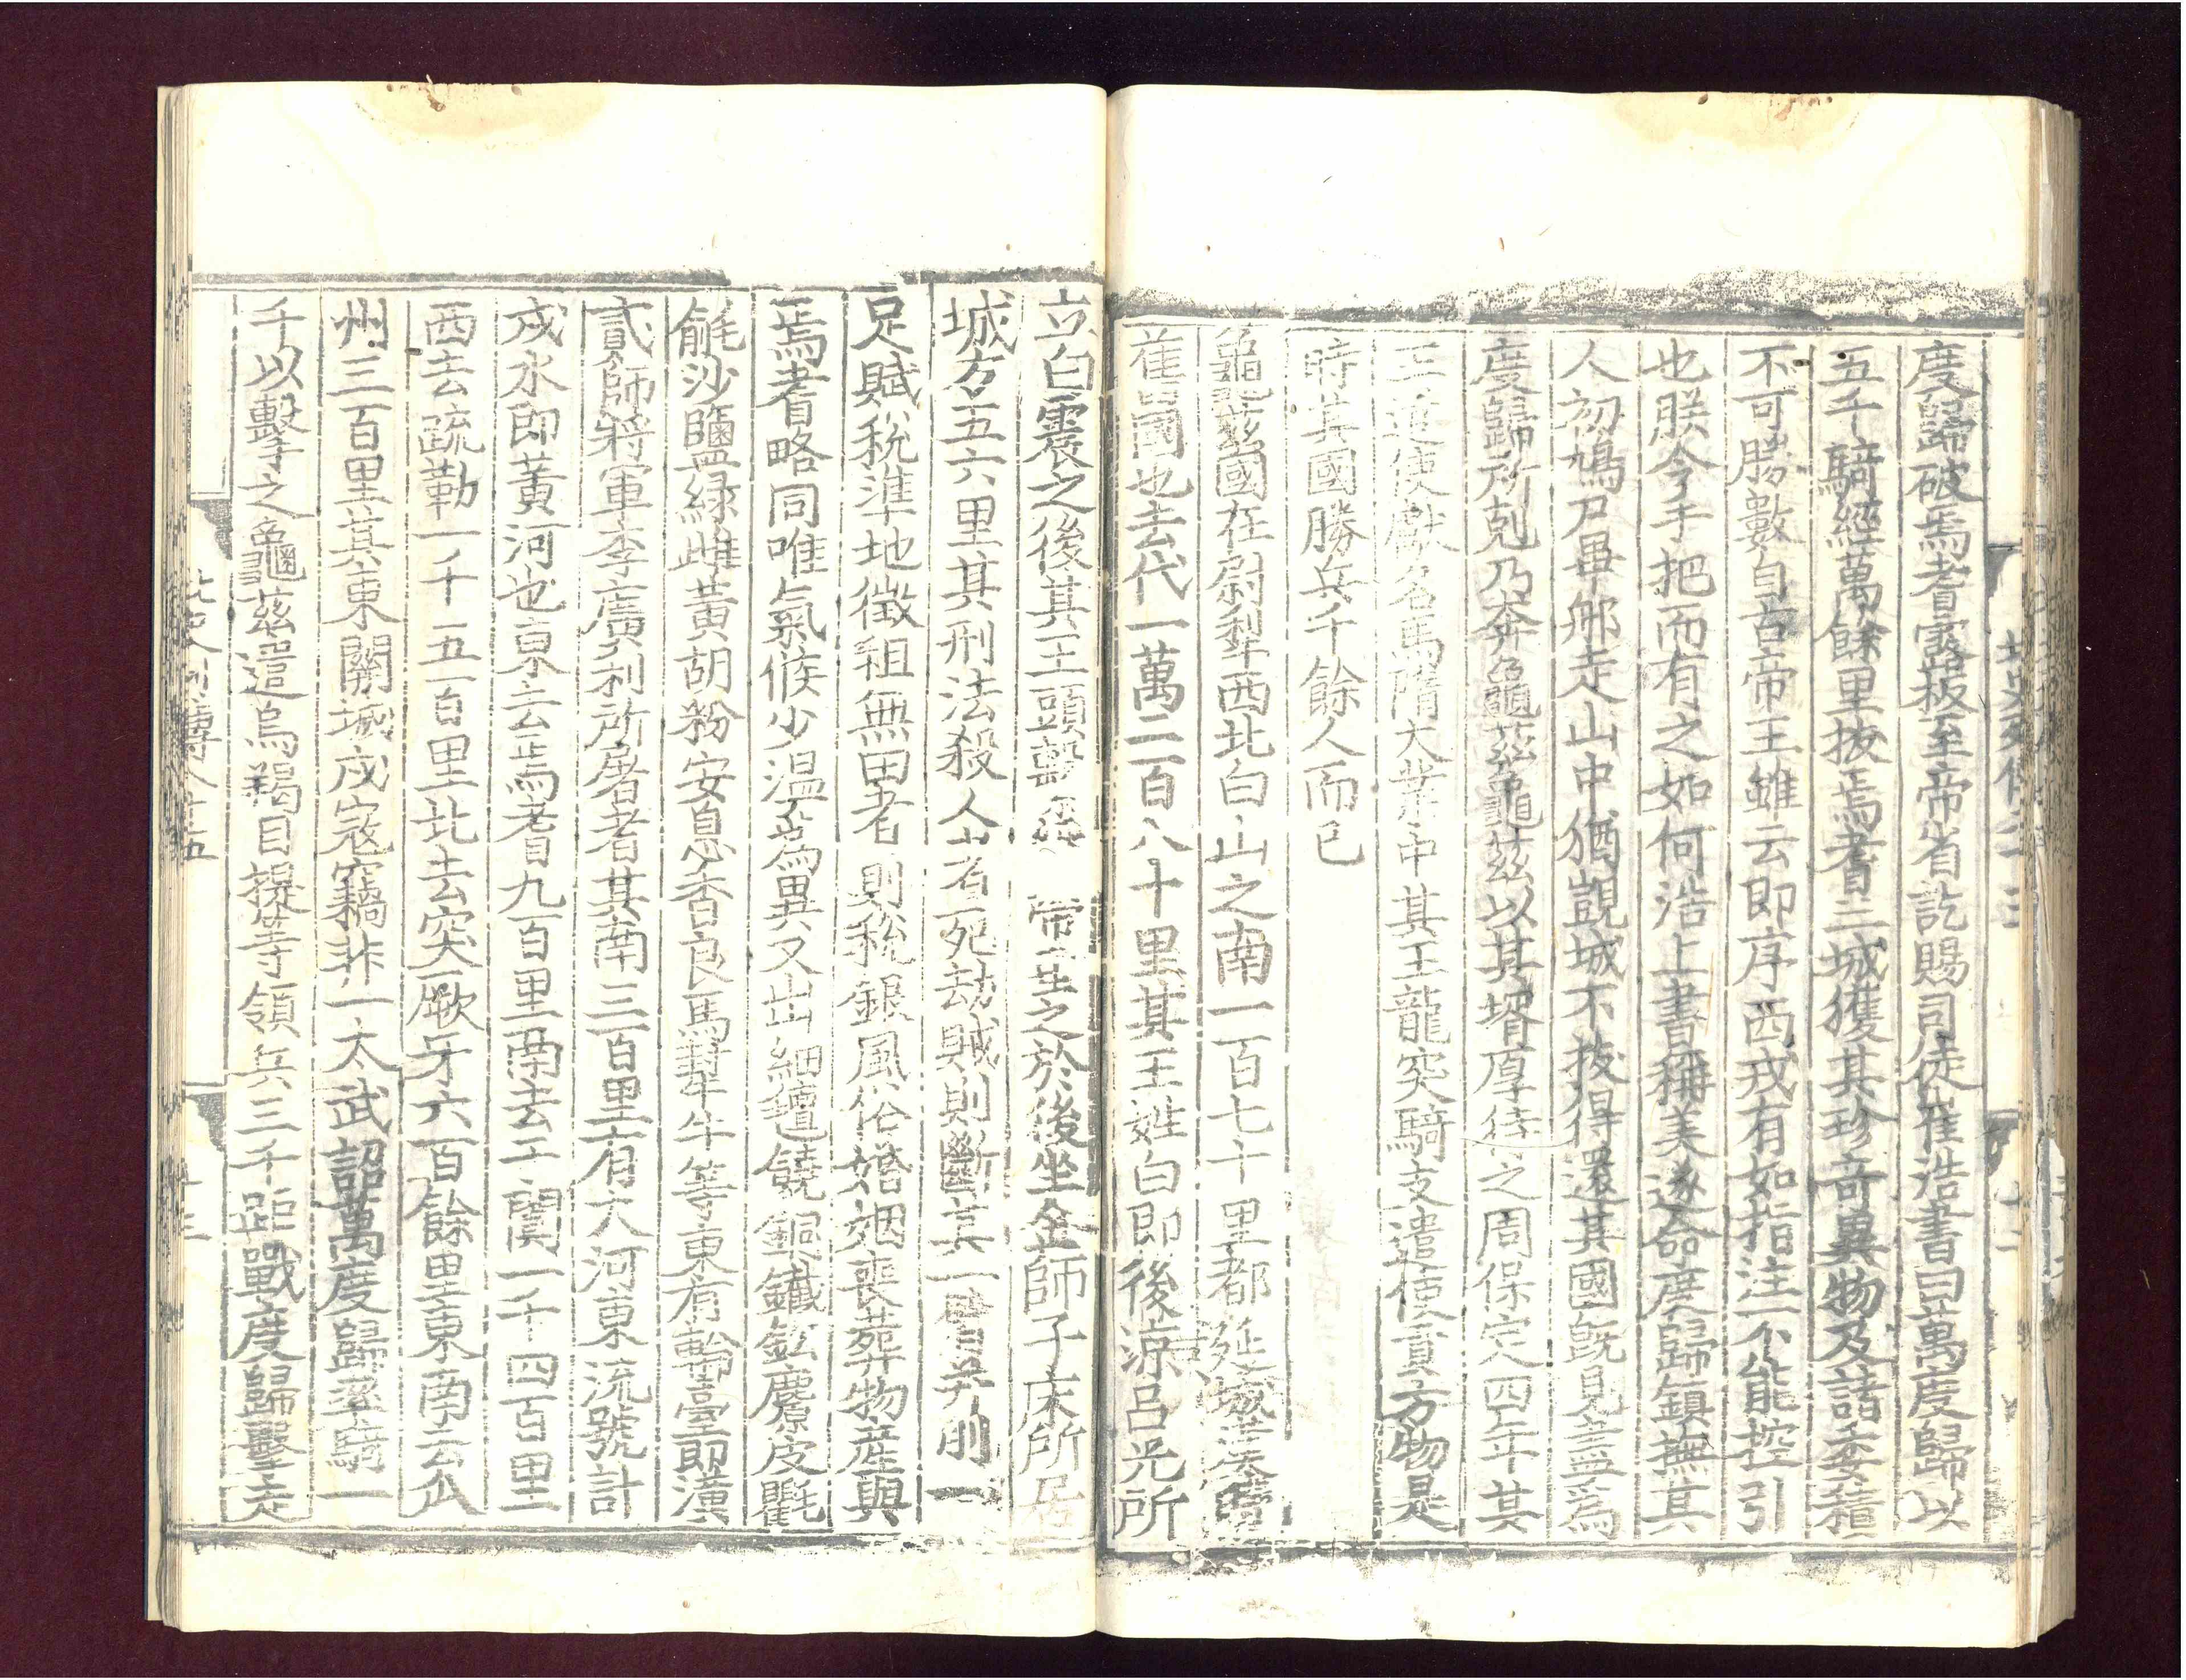 度歸破焉耆露板至帝省訖賜司徒崔浩書曰萬度歸以
五千騎經萬餘里拔焉耆三城獲其珍奇異物及諸委積
不可勝數自古帝王雖云即序西戎有如指注不能控引
也朕今手把而有之如何浩上書稱美遂命度歸鎮撫其
人初鳩尸畢那走山中猶覬城不拔得還其國既見盡爲
度歸所剋乃奔龜茲龜茲以其壻厚待之周保定四年其
王遣使獻名馬隋大業中其王龍突騎支遣使貢方物是
時其國勝兵千餘人而已
龜茲國在尉犁西北白山之南一百七十里都延城漢時舊
國也去代一萬二百八十里其王姓白即後涼呂光所
立白震之後其王頭繫 帶 垂之於後坐金師子床所居
城方五六里其刑法殺人者死劫賊則斷其一臂并刖一
足賦稅準地徵租無田者則稅銀風俗婚姻喪葬物產與
焉耆略同唯氣候少温爲異又出細氈饒銅鐵鉛麖皮氍
毹沙鹽綠雌黃胡粉安息香良馬犎牛等東有輪臺即漢
貳師將軍李廣利所屠者其南三百里有大河東流號計
戍水即黃河也東去焉耆九百里南去于闐一千四百里
西去疏勒一千五百里北去突厥牙六百餘里東南去瓜
州三百里其東關城戍寇竊非一太武詔萬度歸率騎一
千以擊之龜茲遣烏羯目提等領兵三千距戰度歸擊走